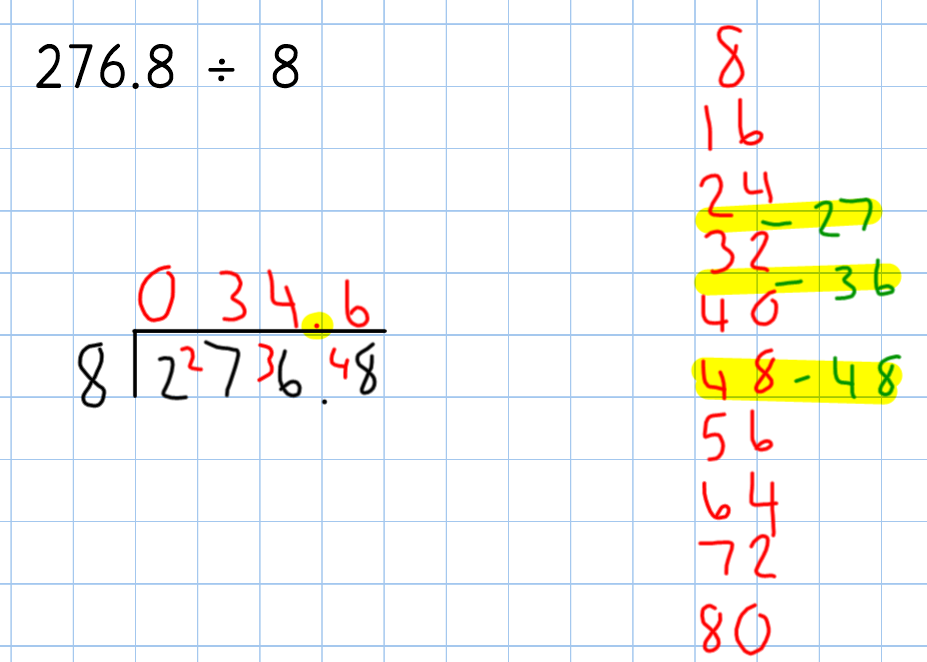 276.8 ÷ 8
0 3 4 . 6
8 2 2 7 3 6 . 4 8
8
16
24
- 27
32
- 36
40
48 - 48
56
64
72
80